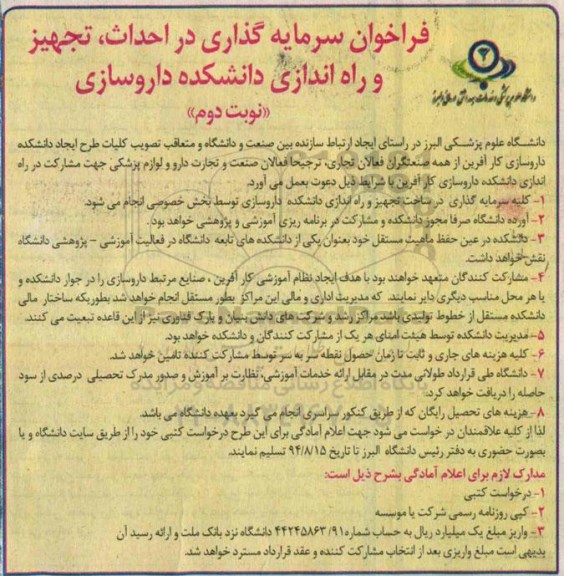 فراخوان سرمایه گذاری در احداث، تجهیز
و راه اندازی دانشکده داروسازی
«نوبت دوم»
دانشگاه علوم پزشکی البرز در راستای ایجاد ارتباط سازنده بین صنعت و دانشگاه و متعاقب تصویب کلیات طرح ایجاد دانشکده
داروسازی کار آفرین از همه صنعتگران فعالان تجاری، ترجیحا فعالان صنعت و تجارت دارو و لوازم پزشکی جهت مشارکت در راه
اندازی دانشکده داروسازی کار آفرین با شرایط ذیل دعوت بعمل می آورد.
۱- کلیه سرمایه گذاری در ساخت تجهیز و راه اندازی دانشکده داروسازی توسط بخش خصوصی انجام می شود.
۲- آورده دانشگاه صرفا مجوز دانشکده و مشارکت در برنامه ریزی آموزشی و پژوهشی خواهد بود.
۳- دانشکده در عین حفظ ماهیت مستقل خود بعنوان یکی از دانشکده های تابعه دانشگاه در فعالیت آموزشی - پژوهشی دانشگاه
نقش خواهد داشت.
۴- مشارکت کنندگان متعهد خواهند بود با هدف ایجاد نظام آموزشی کار آفرین ، صنایع مرتبط داروسازی را در جوار دانشکده و
یا هر محل مناسب دیگری دایر نمایند. که مدیریت اداری و مالی این مراکز بطور مستقل انجام خواهد شد بطوریکه ساختار مالی
دانشکده مستقل از خطوط تولیدی باشد مراکز رشد و شرکت های دانش بنیان و پارک فناوری نیز از این قاعده تبعیت می کنند.
۵- مدیریت دانشکده توسط هیئت امنای هر یک از مشارکت کنندگان و دانشکده خواهد بود.
۶- کلیه هزینه های جاری و ثابت تا زمان حصول نقطه سر به سر توسط مشارکت کننده تامین خواهد شد.
۷- دانشگاه طی قرارداد طولانی مدت در مقابل ارائه خدمات آموزشی، نظارت بر آموزش و صدور مدرک تحصیلی درصدی از سود
حاصله را دریافت خواهد کرد.
۸- هزینه های تحصیل رایگان که از طریق کنکور سراسری انجام می گیرد بعهده دانشگاه می باشد.
لذا از کلیه علاقمندان در خواست می شود جهت اعلام آمادگی برای این طرح درخواست کتبی خود را از طریق سایت دانشگاه و یا
بصورت حضوری به دفتر رئیس دانشگاه البرز تا تاریخ ۹۴/۸/۱۵ تسلیم نمایند.
مدارک لازم برای اعلام آمادگی بشرح ذیل است:
۱- درخواست کتبی
۲- کپی روزنامه رسمی شرکت یا موسسه
۳- واریز مبلغ یک میلیارد ریال به حساب شماره ۴۴۲۴۵۸۶۳/۹۱ دانشگاه نزد بانک ملت و ارائه رسید آن
بدیهی است مبلغ واریزی بعد از انتخاب مشارکت کننده و عقد قرارداد مسترد خواهد شد.